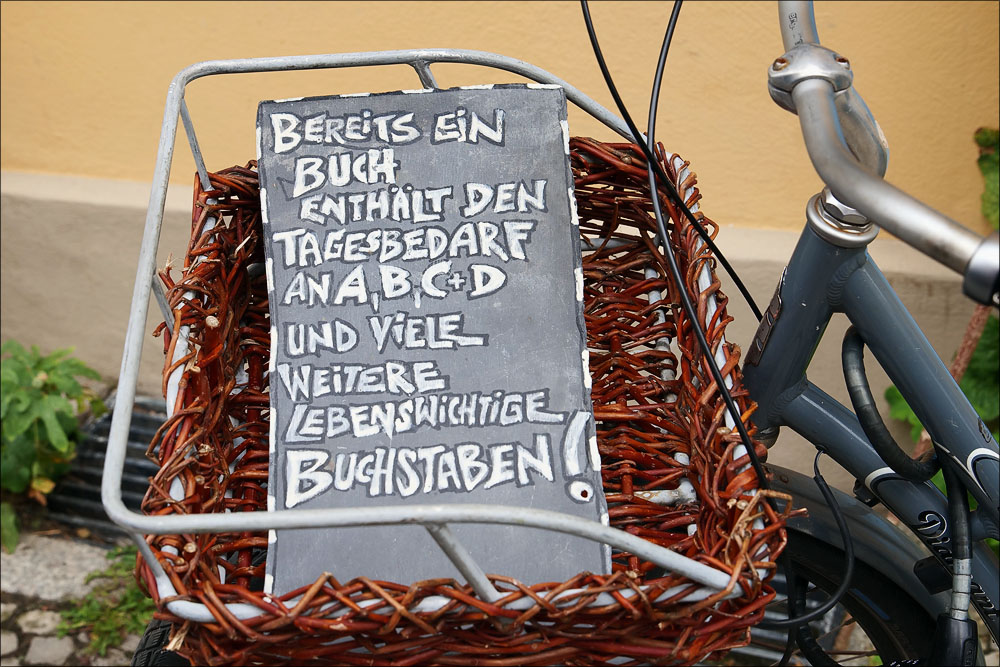 BEREITS EIN
BUCH
ENTHÄLT DEN
TAGESBEDARF
AN A, B, C+D
UND VIELE
WEITERE
LEBENSWICHTIGE
BUCHSTABEN!